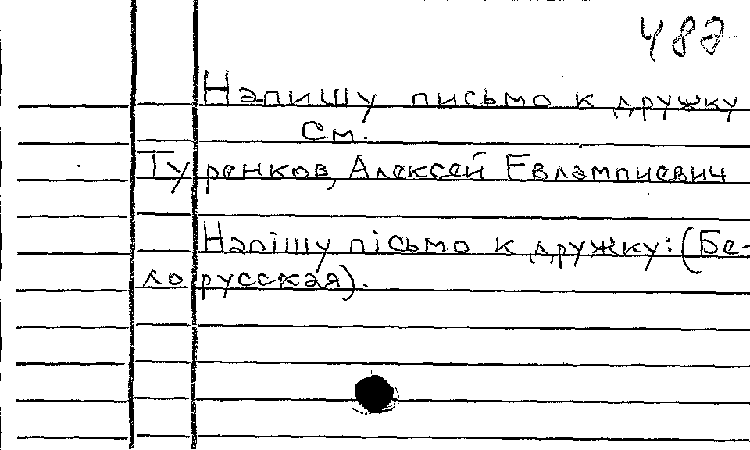 482
Напишу письмо к дружку
см.
Туренков, Алексей Евлампиевич
Напішу пісьмо к дружку: (Бе-
лорусская).